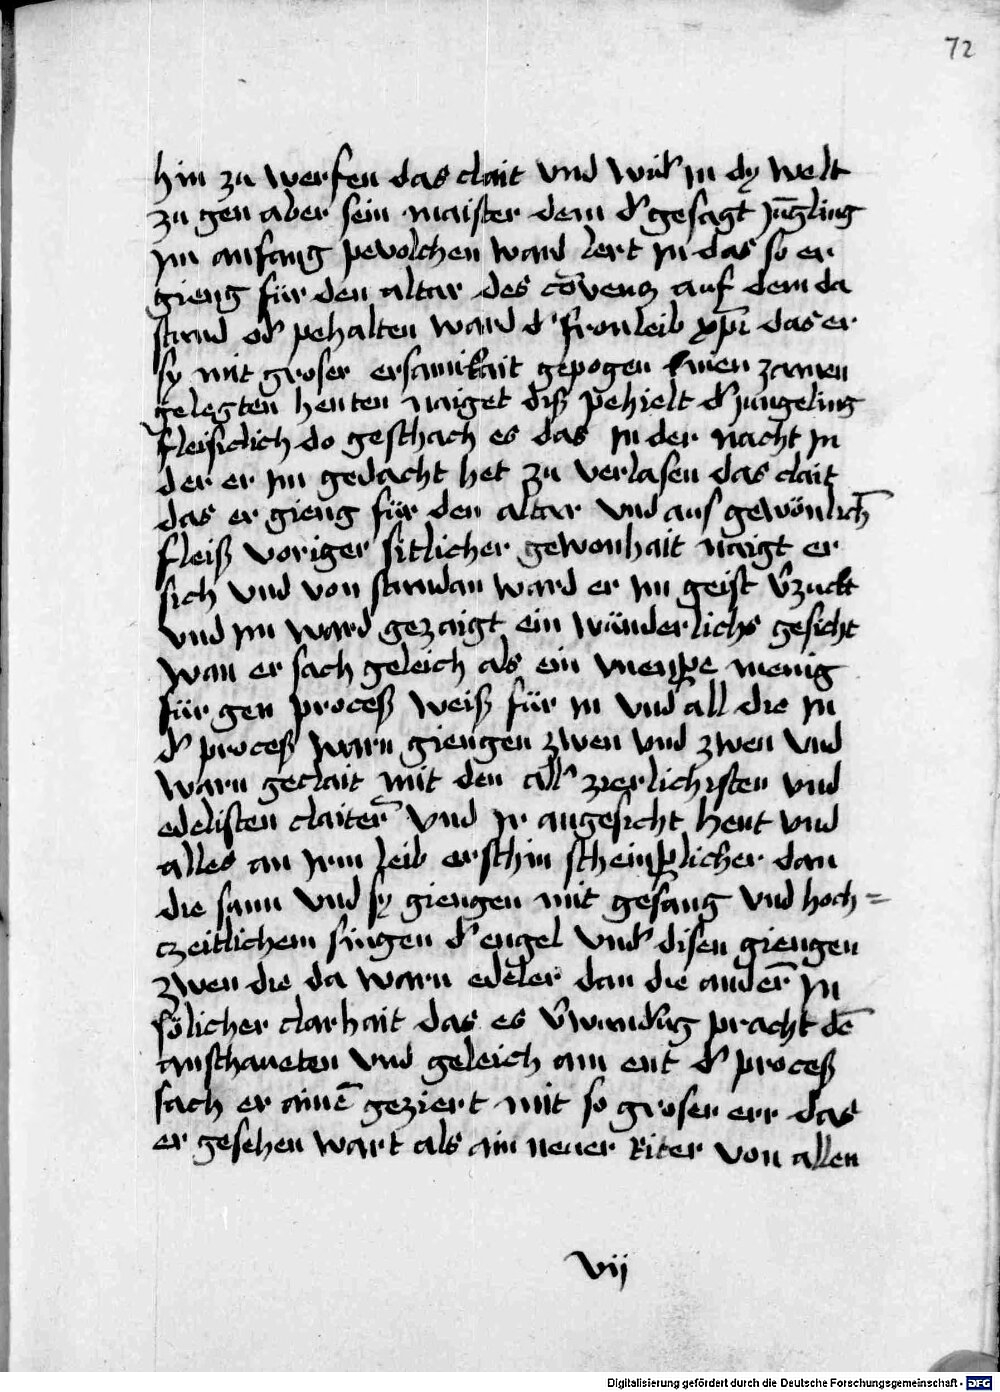 72
hin zu werfen das clait vnd wid' in dy welt
zu gen aber sein maister dem d' gesagt jūgling
im anfang pevolchen ward lert in das so er
gieng für den altar des cōvencz auf dem da
stund od' pehalten ward d' fronleib xp̄i das er
sy mit groser ersamikait gepogen knien zamen
gelegten henten naiget diß pehielt d' jungeling
fleisiclich do geschach es das in der nacht in
der er im gedacht het zu verlasen das clait
das er gieng für den altar vnd aus gewönlich̄
fleiß voriger sitlicher gewonhait naigt er
sich vnd von stundan ward er im geist v̄'zuckt
vnd im ward gezaigt ein wünderlichs gesicht
wan er sach geleich als ein menge menig
für gen proceß weiß für in vnd all die in
d' proceß warn giengen zwen vnd zwen vnd
warn geclait mit den all' zierlichisten vnd
edelisten claiter̄ vnd ir angesicht hent vnd
alles an irm leib erschin scheinperlicher dan
die sunn vnd sy giengen mit gesang vnd hoch=
czeitlichem singen d' engel vnd' disen giengen
zwen die da warn edeler dan die ander̄ in
sölicher clarhait das es v'wund'ūg pracht dē
anschaueten vnd geleich am ent d' proceß
sach er ainē geziert mit so groser err das
er gesehen wart als ain neuer Riter von allen
vij
Digitalisierung gefördert durch die Deutsche Forschungsgemeinschaft - DFG